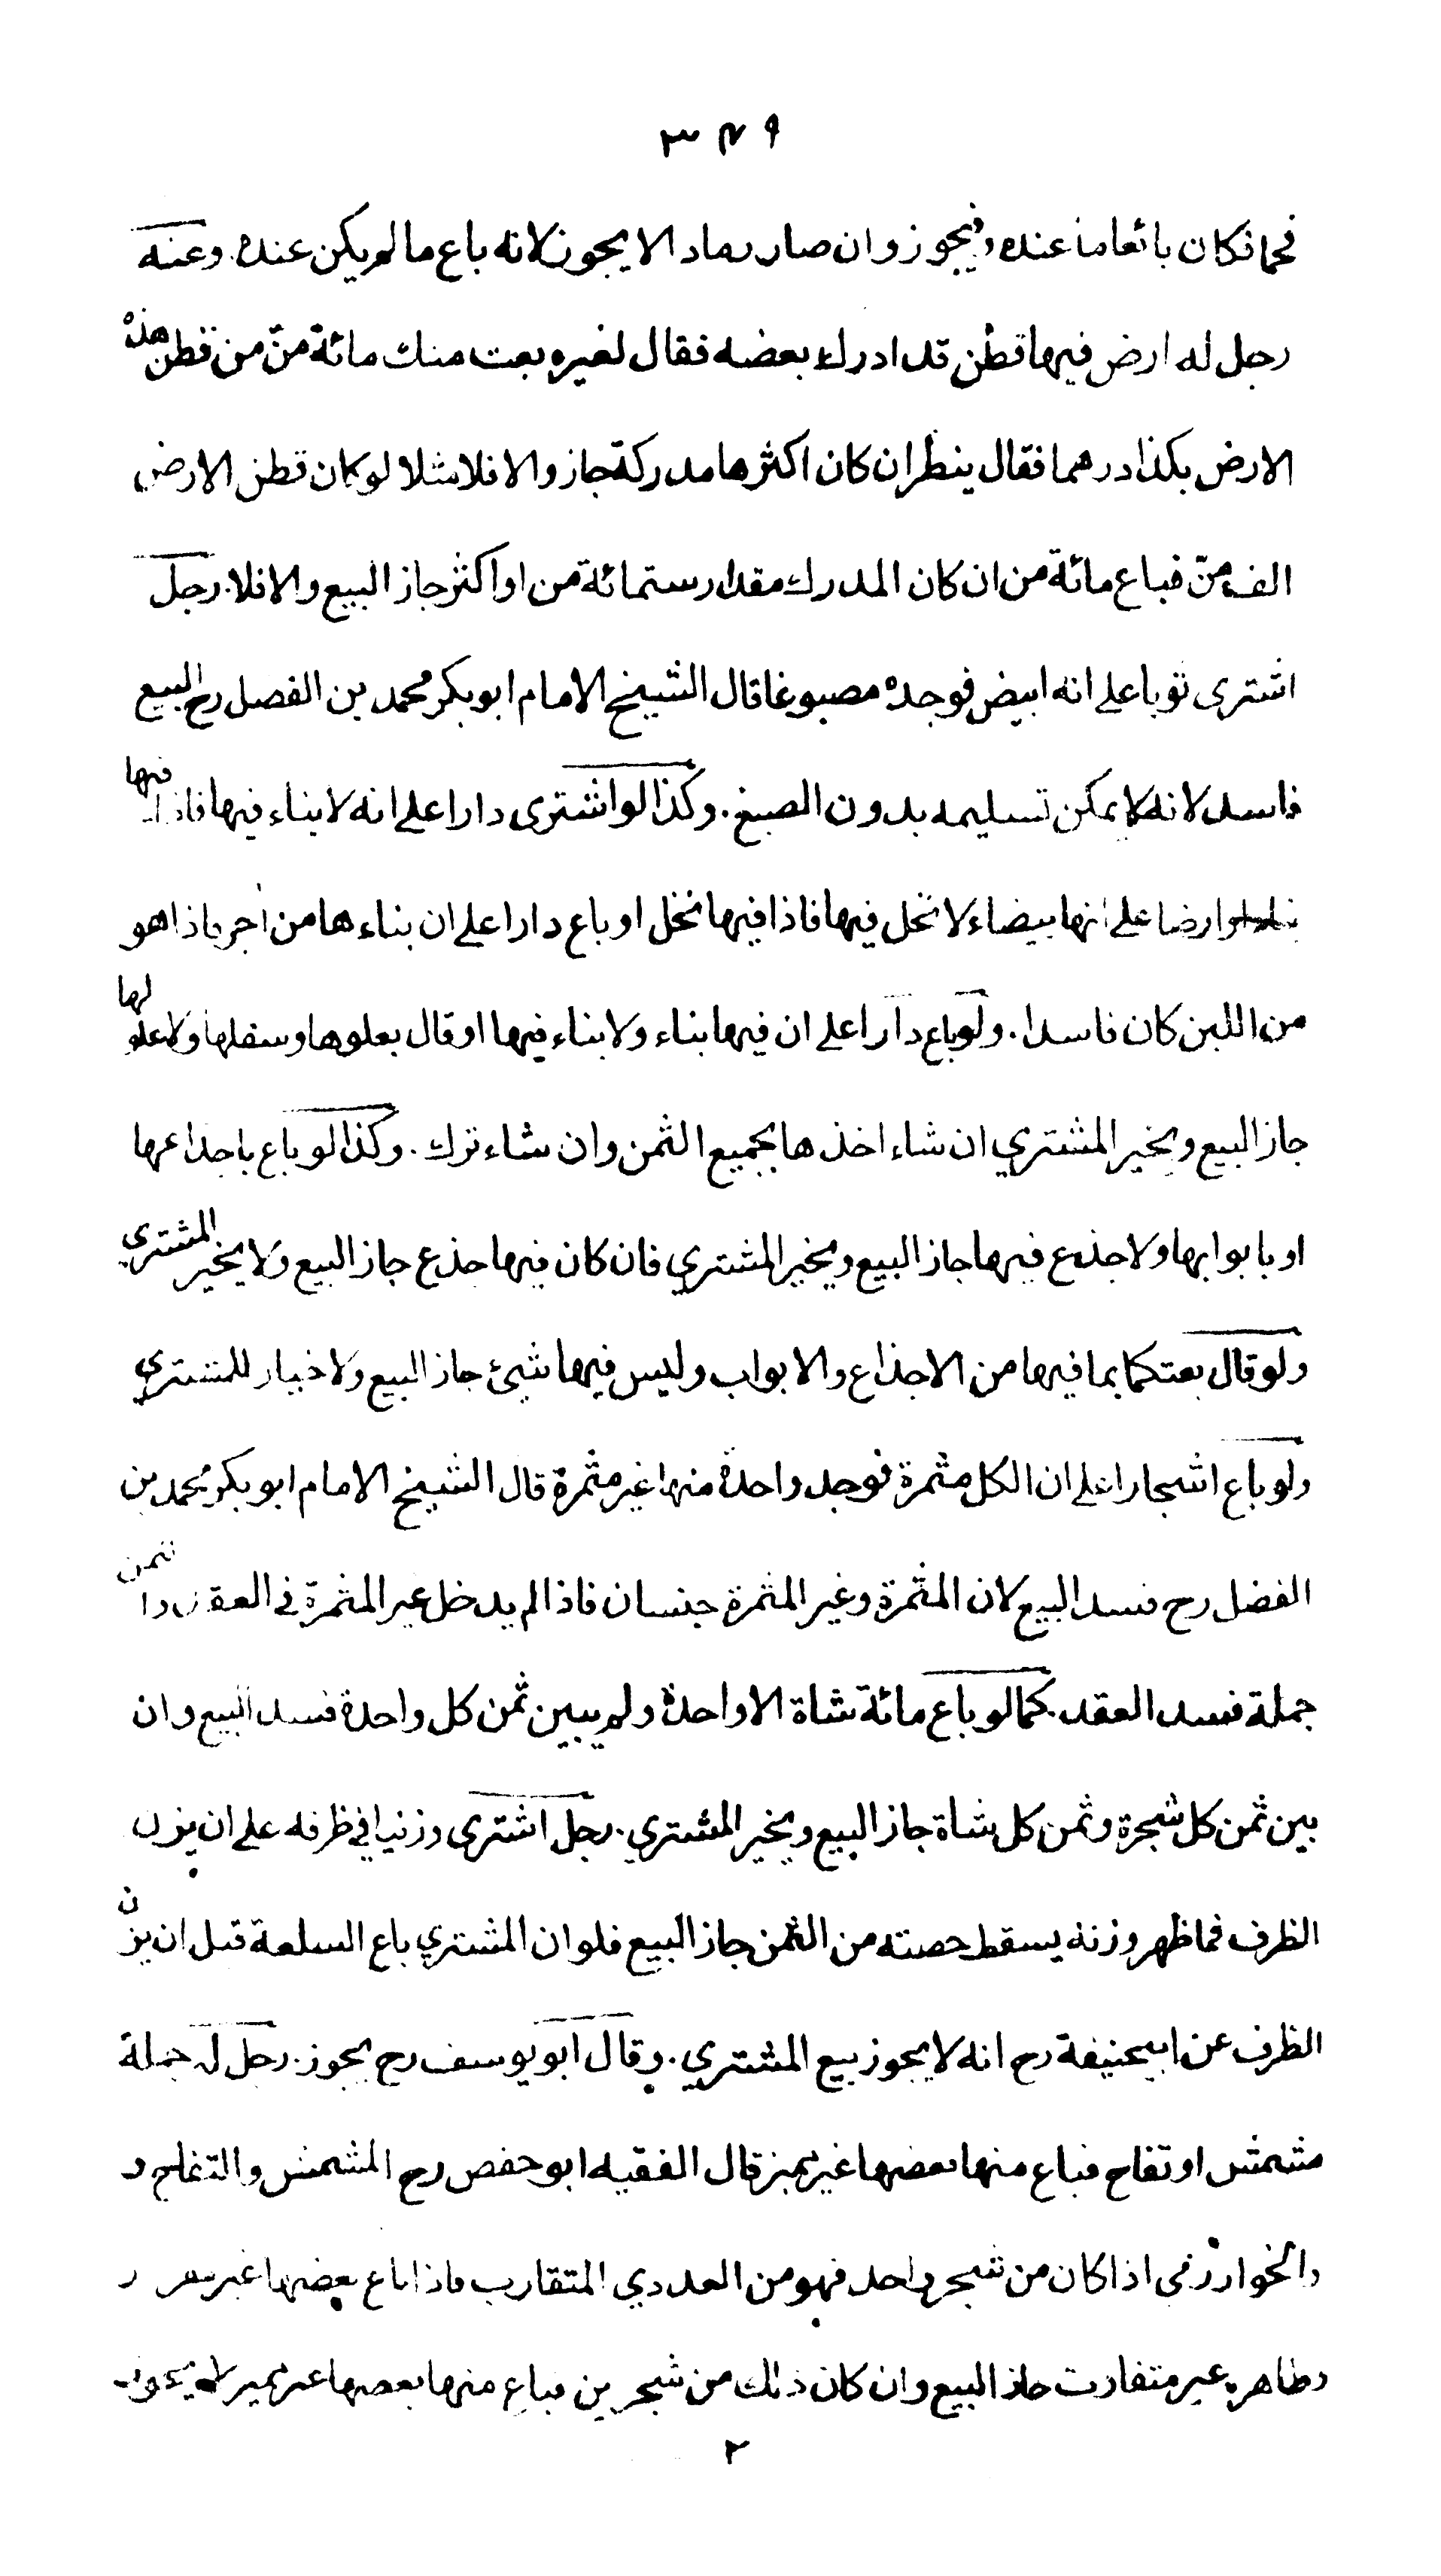 ٣٤٩
فحما فكان بائعا ما عنده فيجوز وان صار رمادا لا يجوز لانه باع ما لم يكن عنده وعنه
رجل له ارض فيها قطن قد ادرك بعضه فقال لغيره بعت منك مائة منّ من قطن هذه
الارض بكذا درهما فقال ينظر ان كان اكثرها مدركة جاز والا فلا مثلا لو كان قطن الارض
الف منّ فباع مائة من ان كان المدرك مقدار ستمائة من او اكثر جاز البيع والا فلا. رجل
اشترى ثوبا على انه ابيض فوجده مصبوغا قال الشيخ الامام ابو بكر محمد بن الفضل رح البيع
فاسد لانه لا يمكن تسليمه بدون الصبغ. وكذا لو اشترى دارا على انه لا بناء فيها فاذا فيها
بناء او ارضا على انها بيضاء لا نخل فيها فاذا فيها نخل او باع دارا على ان بناءها من اجر فاذا هو
من اللبن كان فاسدا. ولو باع دارا على ان فيها بناء ولا بناء فيها او قال بعلوها وسفلها ولا علو لها
جاز البيع ويخير المشتري ان شاء اخذها بجميع الثمن وان شاء ترك. وكذا لو باع باجذاعها
او بابوابها ولا جذع فيها جاز البيع ويخير المشتري فان كان فيها جذع جاز البيع ولا يخير المشتري
ولو قال بعتكها بما فيها من الاجذاع والابواب وليس فيها شيئ جاز البيع ولا خيار للمشتري
ولو باع اشجارا على ان الكل مثمرة فوجد واحدة منها غير مثمرة قال الشيخ الامام ابو بكر محمد بن
الفضل رح فسد البيع لان المثمرة وغير المثمرة جنسان فاذا لم يدخل غير المثمرة في العقد ثمن
جملة فسد العقد. كما لو باع مائة شاة الا واحدة ولم يبين ثمن كل واحدة فسد البيع وان
بين ثمن كل شجرة وثمن كل شاة جاز البيع ويخير المشتري. رجل اشترى وزنيا في ظرفه على ان يزن
الظرف فما ظهر وزنه يسقط حصته من الثمن جاز البيع فلو ان المشتري باع السلعة قبل ان يزن
الظرف عن ابيحنيفة رح انه لا يجوز بيع المشتري. وقال ابو يوسف رح يجوز. رجل له جملة
مشمش او تفاح فباع منها بعضها غير مميز قال الفقيه ابو حفص رح المشمش والتفاح و
والخوارزمي اذا كان من شجر واحد فهو من العددي المتقارب فاذا باع بعضها غير
وظاهره غير متفاوت جاز البيع وان كان ذلك من شجرين فباع منها بعضها غير مميز لا يجوز
٢